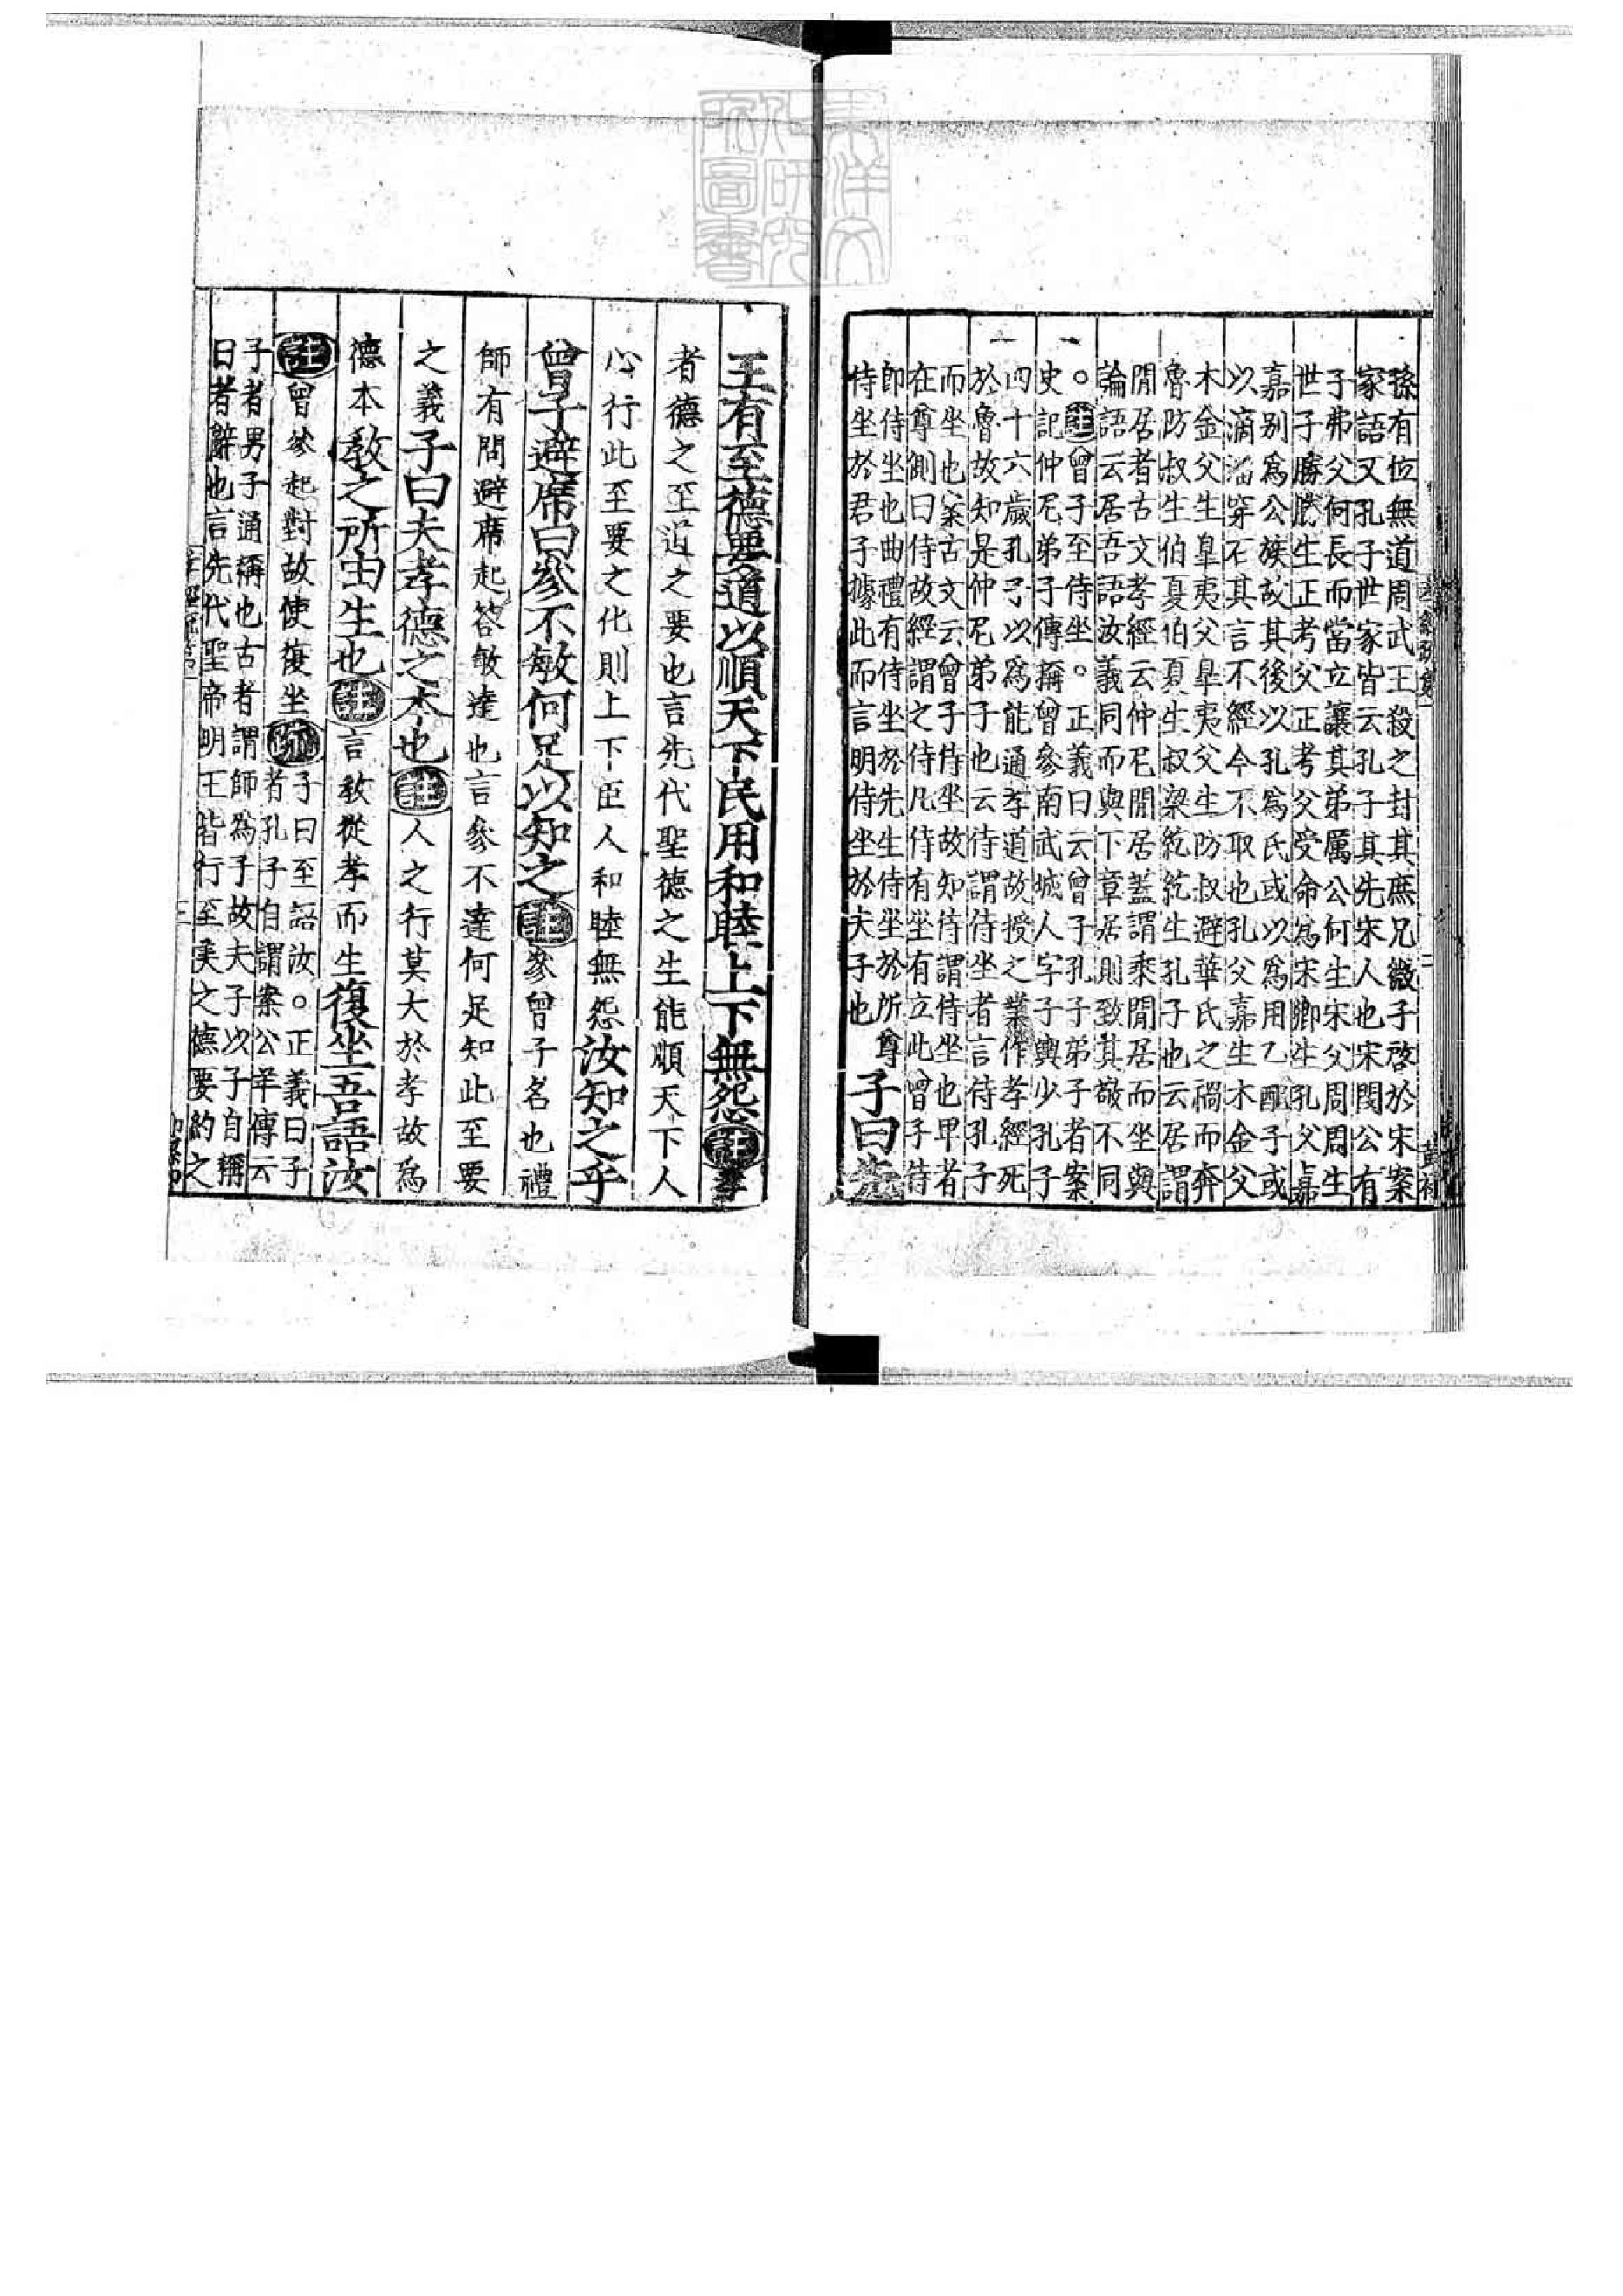 孫有位無道周武王殺之封其庶兄微子啓於宋案
家語又孔子世家皆云孔子其先宋人也宋閔公有
子弗父何長而當立讓其弟厲公何生宋父周周生
世子勝勝生正考父正考父受命爲宋卿生孔父嘉
嘉别爲公族故其後以孔爲氏或以爲用乙配子或
以滴溜穿石其言不經今不取也孔父嘉生木金父
木金父生皐夷父皐夷父生防叔避華氏之禍而奔
魯防叔生伯夏伯夏生叔梁紇紇生孔子也云居謂
閒居者古文孝經云仲尼閒居蓋謂乘閒居而坐與
論語云居吾語汝義同而與下章居則致其敬不同
。註曾子至侍坐。正義曰云曾子孔子弟子者案
史記仲尼弟子傳稱曾參南武城人字子輿少孔子
四十六歲孔子以爲能通孝道故授之業作孝經死
於魯故知是仲尼弟子也云侍謂侍坐者言侍孔子
而坐也案古文云曾子侍坐故知侍謂侍坐也卑者
在尊側曰侍故經謂之侍凡侍有坐有立此曾子侍
即侍坐也曲禮有侍坐於先生侍坐於所尊
侍坐於君子據此而言明侍坐於夫子也 子曰先
王有至德要道以順天下民用和睦上下無怨註孝
者德之至道之要也言先代聖德之主能順天下人
心行此至要之化則上下臣人和睦無怨汝知之乎
曾子避席曰參不敏何足以知之註參曾子名也禮
師有問避席起答敏達也言參不達何足知此至要
之義子曰夫孝德之本也註人之行莫大於孝故爲
德本敎之所由生也註言敎從孝而生復坐吾語汝
註曾參起對故使復坐疏子曰至語汝。正義曰子
者孔子自謂案公羊傳云
子者男子通稱也古者謂師為子故夫子以子自稱
曰者辭也言先代聖帝明王皆行至美之德要約之